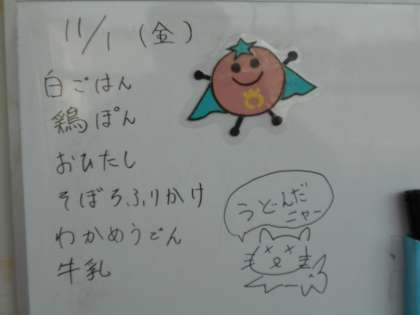 11/1 (金)
白ごはん
鶏ぽん
おひたし
そぼろふりかけ
わかめうどん
牛乳
うどんだ
ニャー